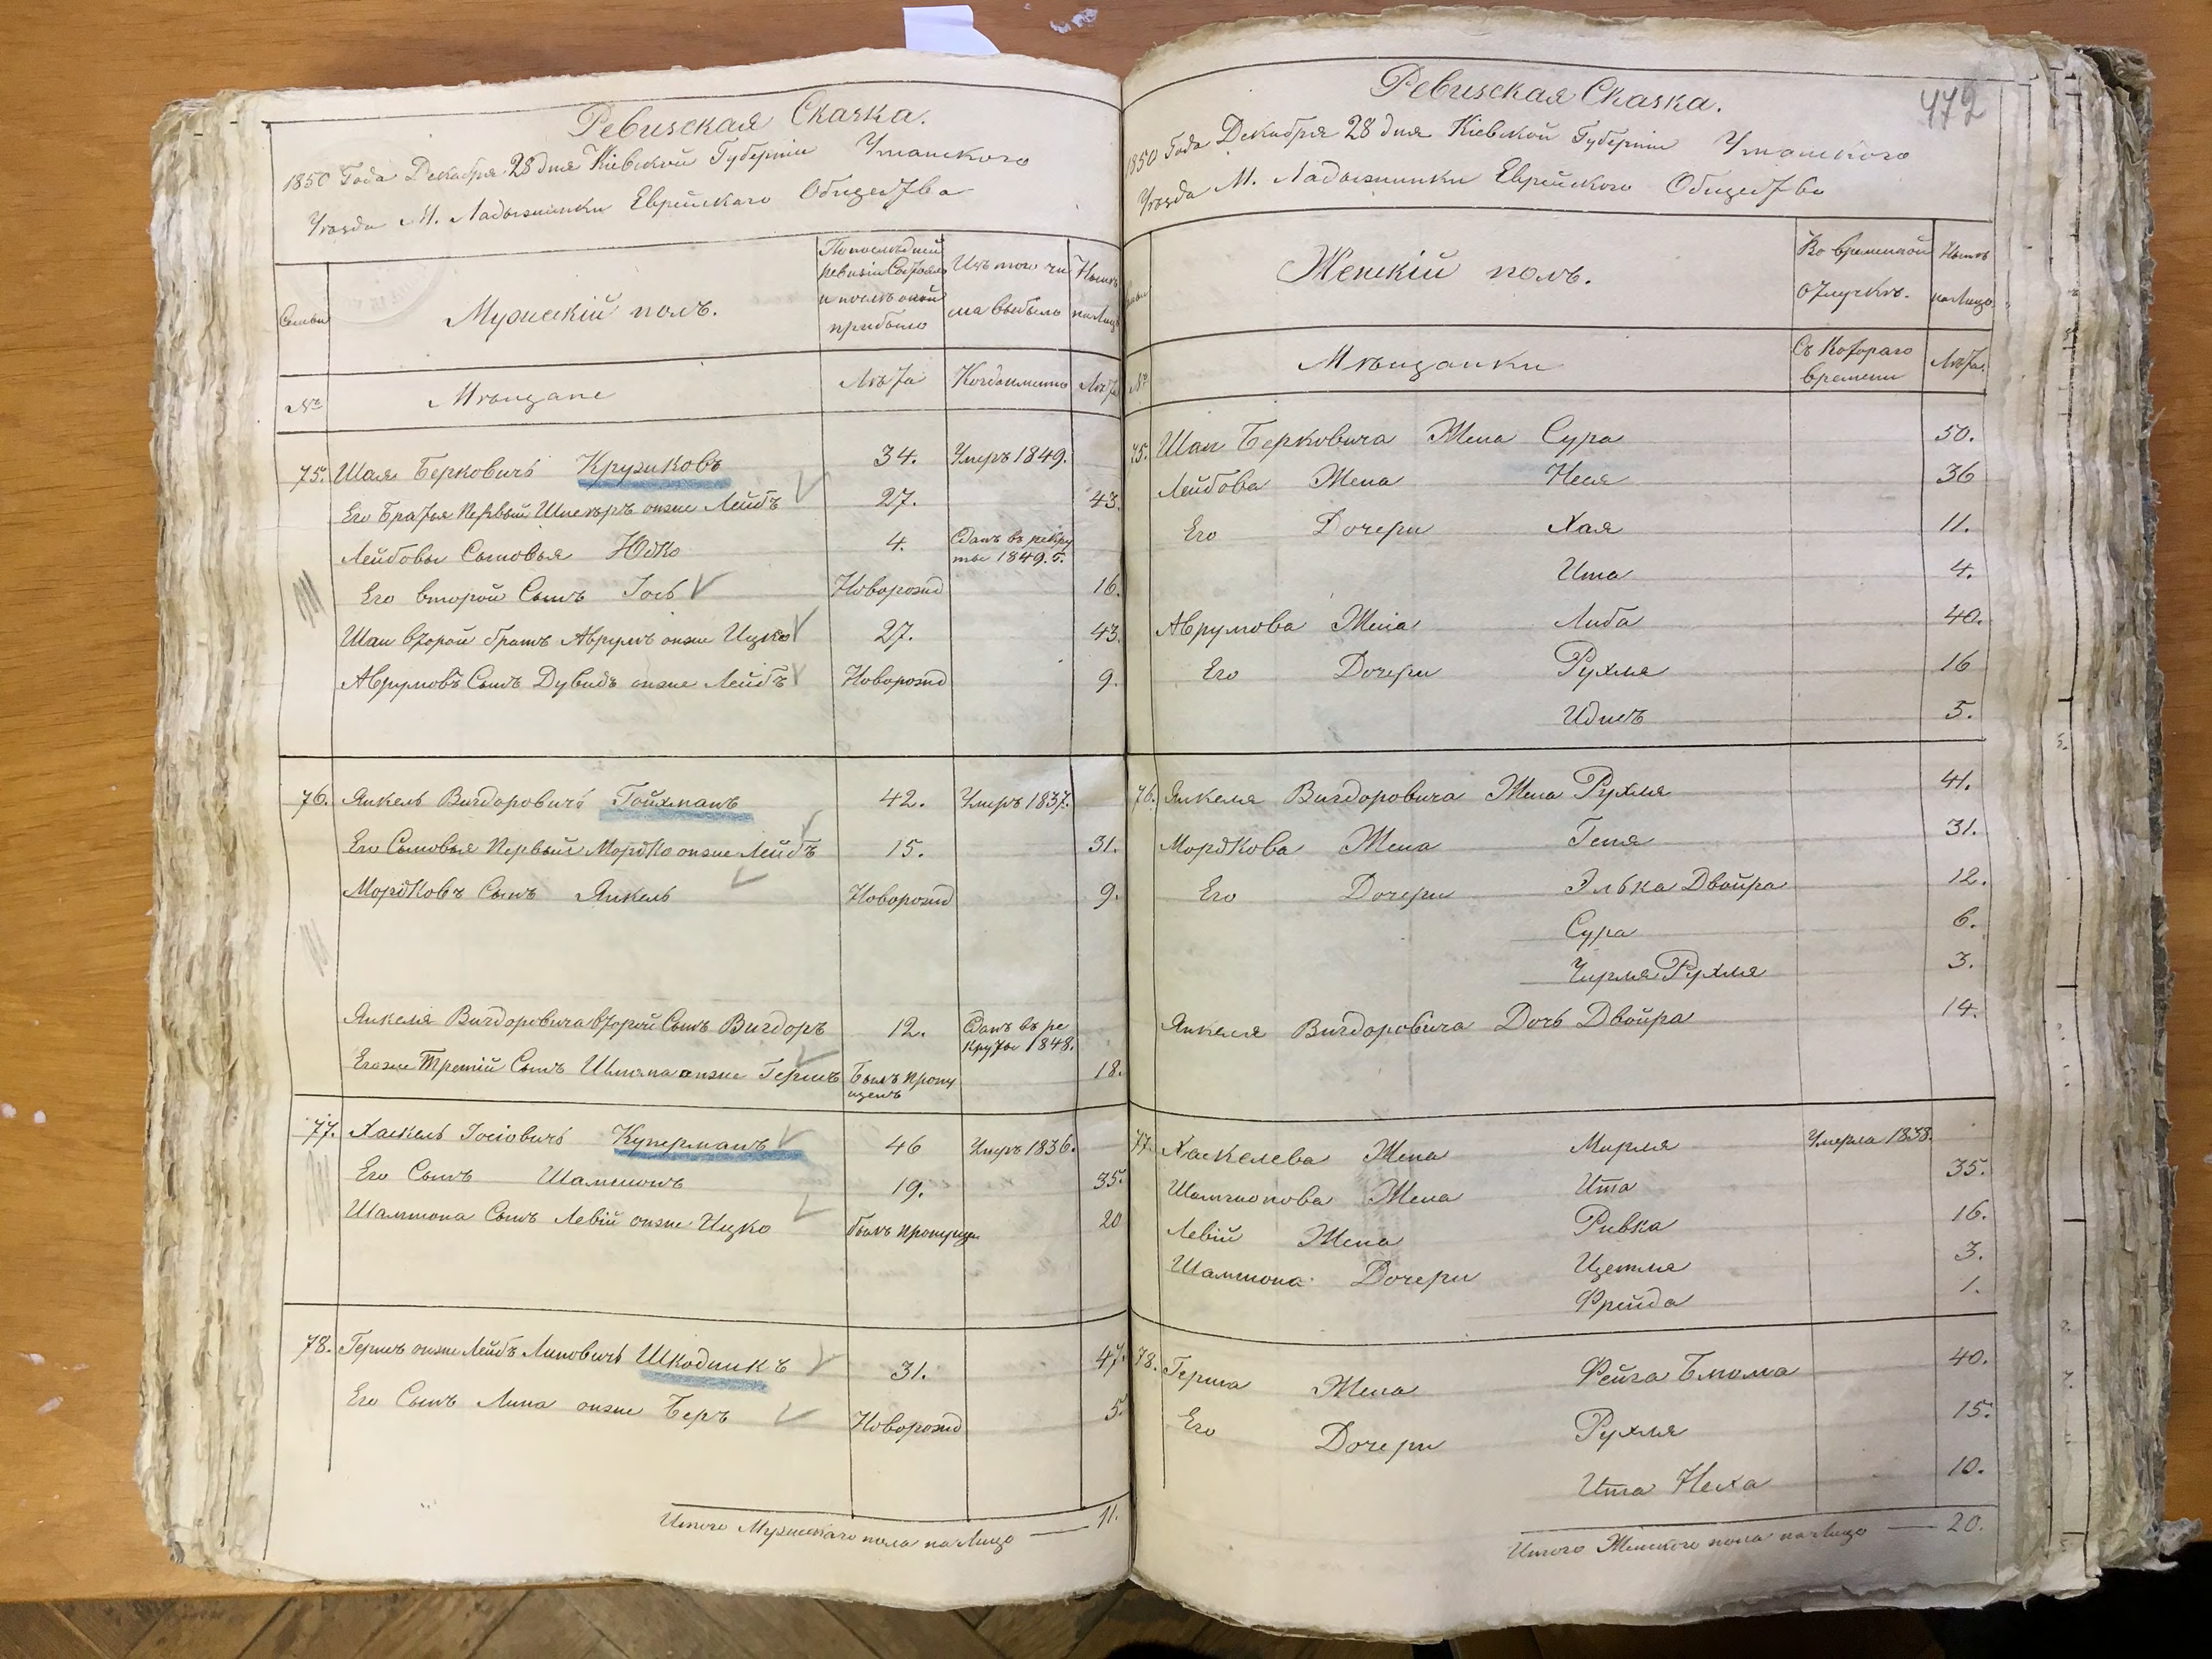 Ревизская Сказка.
1850 Года Декабря 28 дня Кіевской Губерніи Уманскаго
Уѣзда М. Ладыжинки Еврейскаго Общества
Семьи
Мужескій полъ.
По послѣдней
ревизіи Состояло
и послѣ оной
прибыло
Изъ того чи
сла выбыло
Нынѣ
на Лицо
№
Мѣщане
Лѣта
Когда именно
Лѣта
75. Шая Берковичъ Кружковъ 34. Умеръ 1849.
Его Братья Первый Шлемъ онже Лейбъ 27. 43.
Лейбовы Сыновья Юдко 4. Сданъ въ рекру
ты 1849. г.
Его второй Сынъ Іось Новорожд 16.
Шаи второй братъ Аврумъ онже Ицко 27. 43.
Аврумовъ Сынъ Дувидъ онже Лейбъ Новорожд 9.
76. Янкель Вигдоровичъ Гойхманъ 42. Умеръ 1837.
Его Сыновья Первый Мордко онже Лейбъ 15. 31.
Мордковъ Сынъ Янкель Новорожд 9.
Янкеля Вигдоровича второй Сынъ Вигдоръ 12. Сданъ въ ре
круты 1848.
Егоже Третій Сынъ онже Гершъ Былъ пропу
щенъ 18.
77. Хаскель Іосіовичъ Куперманъ 46 Умеръ 1836.
Его Сынъ Шамшонъ 19. 35.
Шамшона Сынъ Левій онже Ицко былъ пропущ 20
78. Гершъ онже Лейбъ Липовичъ Шкодникъ 31. 47.
Его Сынъ Липа онже Беръ Новорожд 5.
Итого Мужескаго пола на Лицо — 11.
472
Ревизская Сказка.
1850 Года Декабря 28 дня Кіевской Губерніи Уманскаго
Уѣзда М. Ладыжинки Еврейскаго Общества
Семьи
Женскій полъ.
Во временной
отлучкѣ.
Нынѣ
на Лицо
№
Мѣщанки
Съ Котораго
времени
Лѣта.
75. Шаи Берковича Жена Сура 50.
Лейбова Жена Неся 36
Его Дочери Хая 11.
Ита 4.
Аврумова Жена Либа 40.
Его Дочери Рухля 16
Идисъ 5.
76. Янкеля Вигдоровича Жена Рухля 41.
Мордкова Жена Геня 31.
Его Дочери Элька Двойра 12.
Сура 6.
Чирля Рухля 3.
Янкеля Вигдоровича Дочь Двойра 14.
77. Хаскелева Жена Мирля Умерла 1838.
Шамшонова Жена Ита 35.
Левій Жена Ривка 16.
Шамшона Дочери Цетля 3.
Фрейда 1.
78. Герша Жена Фейга Блюма 40.
Его Дочери Рухля 15.
Ита Неха 10.
Итого Женскаго пола на Лицо — 20.